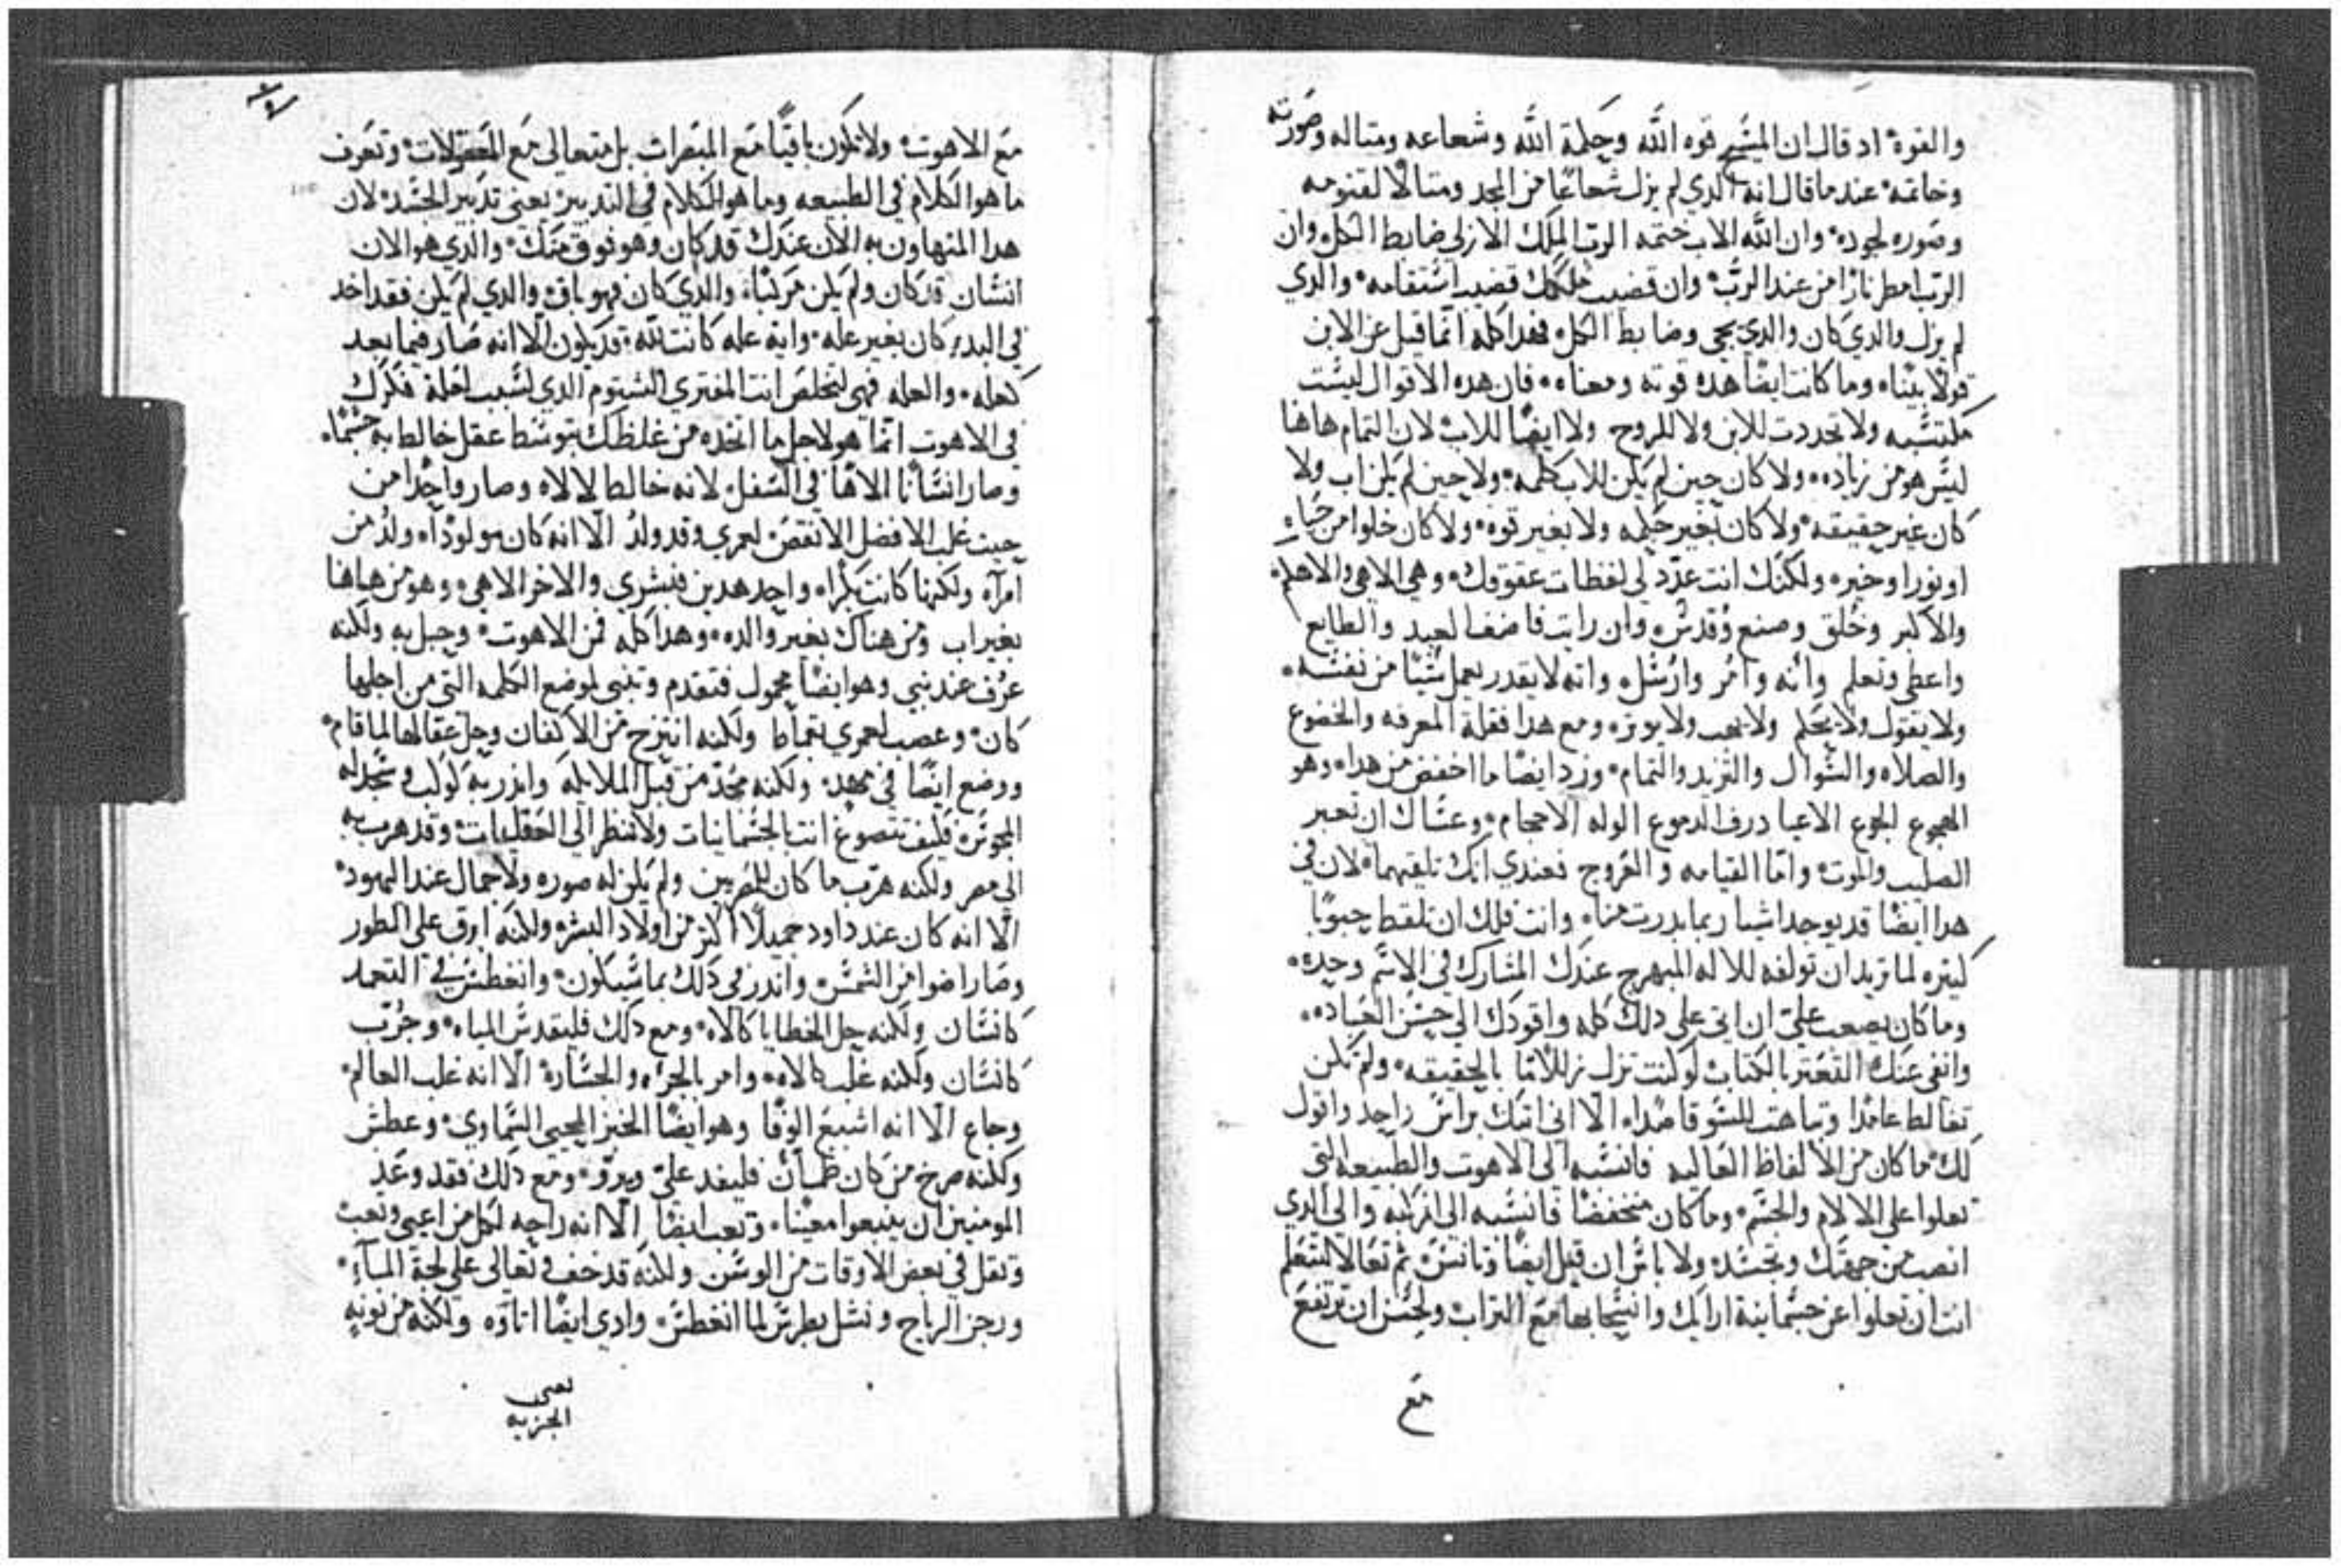 والقوة اد قال ان المسيح قوه الله وحكمة الله وشعاعه ومتاله وصورته
وخاتمه عندما قال انه الدي لم يزل شعاعًا من المجد ومتالًا لقنومه
وصوره لجوده وان الله الاب ختمه الرب الملك الازلي ضابط الكل وان
الرب امطر نارًا من عند الرب وان قضيب ملكك قضيب استقامه والدي
لم يزل والدي كان والدي يجي وضابط الكل فهدا كله انما قيل عن الابن
قولًا بينًا وما كانت ايضًا هده قوته ومعناه فان هده الاقوال ليست
مكتسبه ولا تجددت للابن ولا للروح ولا ايضًا للاب لان التمام هاهنا
ليس هو من زياده ولا كان حين لم يكن للاب كلمه ولا حين لم يكن اب ولا
كان غير حقيقه ولا كان بغير حكمه ولا بغير قوه ولا كان خلوا من حياه
او نورا وخيره ولكنك انت عدد لي لفظات عقوقك وهي الاهي والاهكم
والاكبر وخُلق وصنع وقدس وان رايت فاضف العبد والطايع
واعطي وتعلم وانه وامُر وارُسل وانه لا يقدر يعمل شيًا من نفسه
ولا يقول ولا يحكم ولا يهب ولا يوتره ومع هدا فقلة المعرفه والخضوع
والصلاه والسوال والتزيد والتمام وزد ايضًا ما اخفض من هدا وهو
الهجوع الجوع الاعيا درف الدموع الوله الاحجام وعساك ان تعير
الصليب والموت واما القيامه والعروج فعندي انك تلقيهما لان في
هدا ايضًا قد يوجد اشيا ربما بدرت منا وانت فلك ان تلقط حبوبًا
كتيره لما تريد ان تولفه للاله المبهرج عندك المشارك في الاسم وحده
وما كان يصعب علي ان اتي على دلك كله واقودك الى حسن العباده
وانفي عنك التعتر بالكتاب لو كنت تزل زللًا ما بالحقيقه ولم تكن
تغالط عامدًا وتباهت للسو قاصدًا الا اني اتيك براس واحد واقول
لك ما كان من الالفاظ العاليه فانسبه الى الاهوت والطبيعه التي
تعلوا على الالام والجسم وما كان منخفضًا فانسبه الى المركبه والى الدي
انصب من جهتك وتجسد ولا باس ان قيل ايضًا وتانس تم تعالا لتتعلم
انت ان تعلوا عن جسمانية ارايك وانسحابها مع التراب ولحسن ان ترتفع
مع
مع الاهوت ولا تكون باقيًا مع المبصرات بل متعالي مع المعقولات وتعرف
ما هو الكلام في الطبيعه وما هو الكلام في التدبير يعني تدبير الجسد لان
هدا المتهاون به الان عندك قد كان وهو فوق منك والدي هو الان
انسان قد كان ولم يكن مركبًا والدي كان فهو باقي والدي لم يكن فقد اخد
في البدء كان بغير عله وايه عله كانت لله قد يكون الا انه صار فيما بعد
كعله والعله فهي لتخلص انت المفتري الشتوم الدي لسبب اخلة فكرك
في الاهوت انما هو لاجل ما اتخده من غلظك بتوسط عقل خالط به جسمًا
وصار انسانًا الاهًا في السفل لانه خالط لالاه وصار واحدًا من
حيت غلب الافضل الانقص لعمري وقد ولد الا انه كان مولودًا ولد من
امراه ولكنها كانت بكرًا واحد هدين فبشري والاخر الاهي وهو من هاهنا
بغير اب ومن هناك بغير والده وهدا كله فمن الاهوت وحبل به ولكنه
عرُف عند نبي وهو ايضًا محمول فتقدم وتنبى لموضع الكلمه التي من اجلها
كان وعصب لعمري بقماط ولكنه انتزح من الاكفان وحل عقالها لما قام
ووضع ايضًا في مهد ولكنه مُجد من قبل الملايكه واندر به كوكب وسجد له
المجوس فكيف تتصوغ انت بالجسمانيات ولا تنظر الى العقليات وقد هرب به
الى مصر ولكنه هرب ما كان للمصريين ولم يكن له صوره ولا جمال عند اليهود
الا انه كان عند داود جميلًا اكتر من اولاد البشر ولكنه ابرق على الطور
وصار اضوا من الشمس واندر في دلك بما سيكون وانغطس في التعمد
كانسان ولكنه حل الخطايا كالاه ومع دلك فليقدس المياه وجُرب
كانسان ولكنه غلب كالاه وامر بالجره والجساره الا انه غلب العالم
وجاع الا انه اشبع الوفا وهو ايضًا الخبز المحيي السماوي وعطش
ولكنه صرخ من كان ظمان فليفد علي ويروى ومع دلك فقد وعد
المومنين ان ينبعوا معينًا وتعب ايضًا الا انه راحه لكل من اعيى وتعب
وتقل في بعض الاوقات من الوسن ولكنه قد خف وتعالى على لجة الماء
وزجر الرياح ونشل بطرس لما انغطس وادى ايضًا اتاوه ولكنه من نونه
يعني
الجزيه